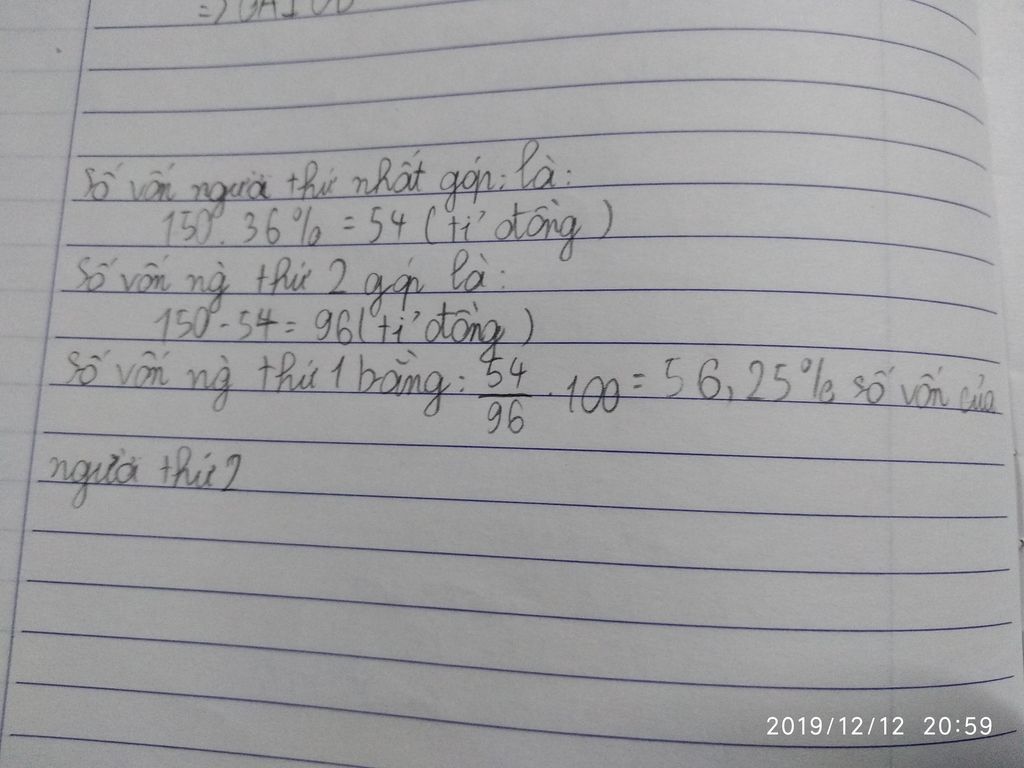 số vốn người thứ nhất góp: là:
150. 36% = 54 (tỉ đồng)
Số vốn ng̀ thứ 2 góp là:
150 - 54 = 96 (tỉ đồng)
Số vốn ng̀ thứ 1 bằng: 54/96 . 100 = 56,25% số vốn của
người thứ 2
2019/12/12 20:59